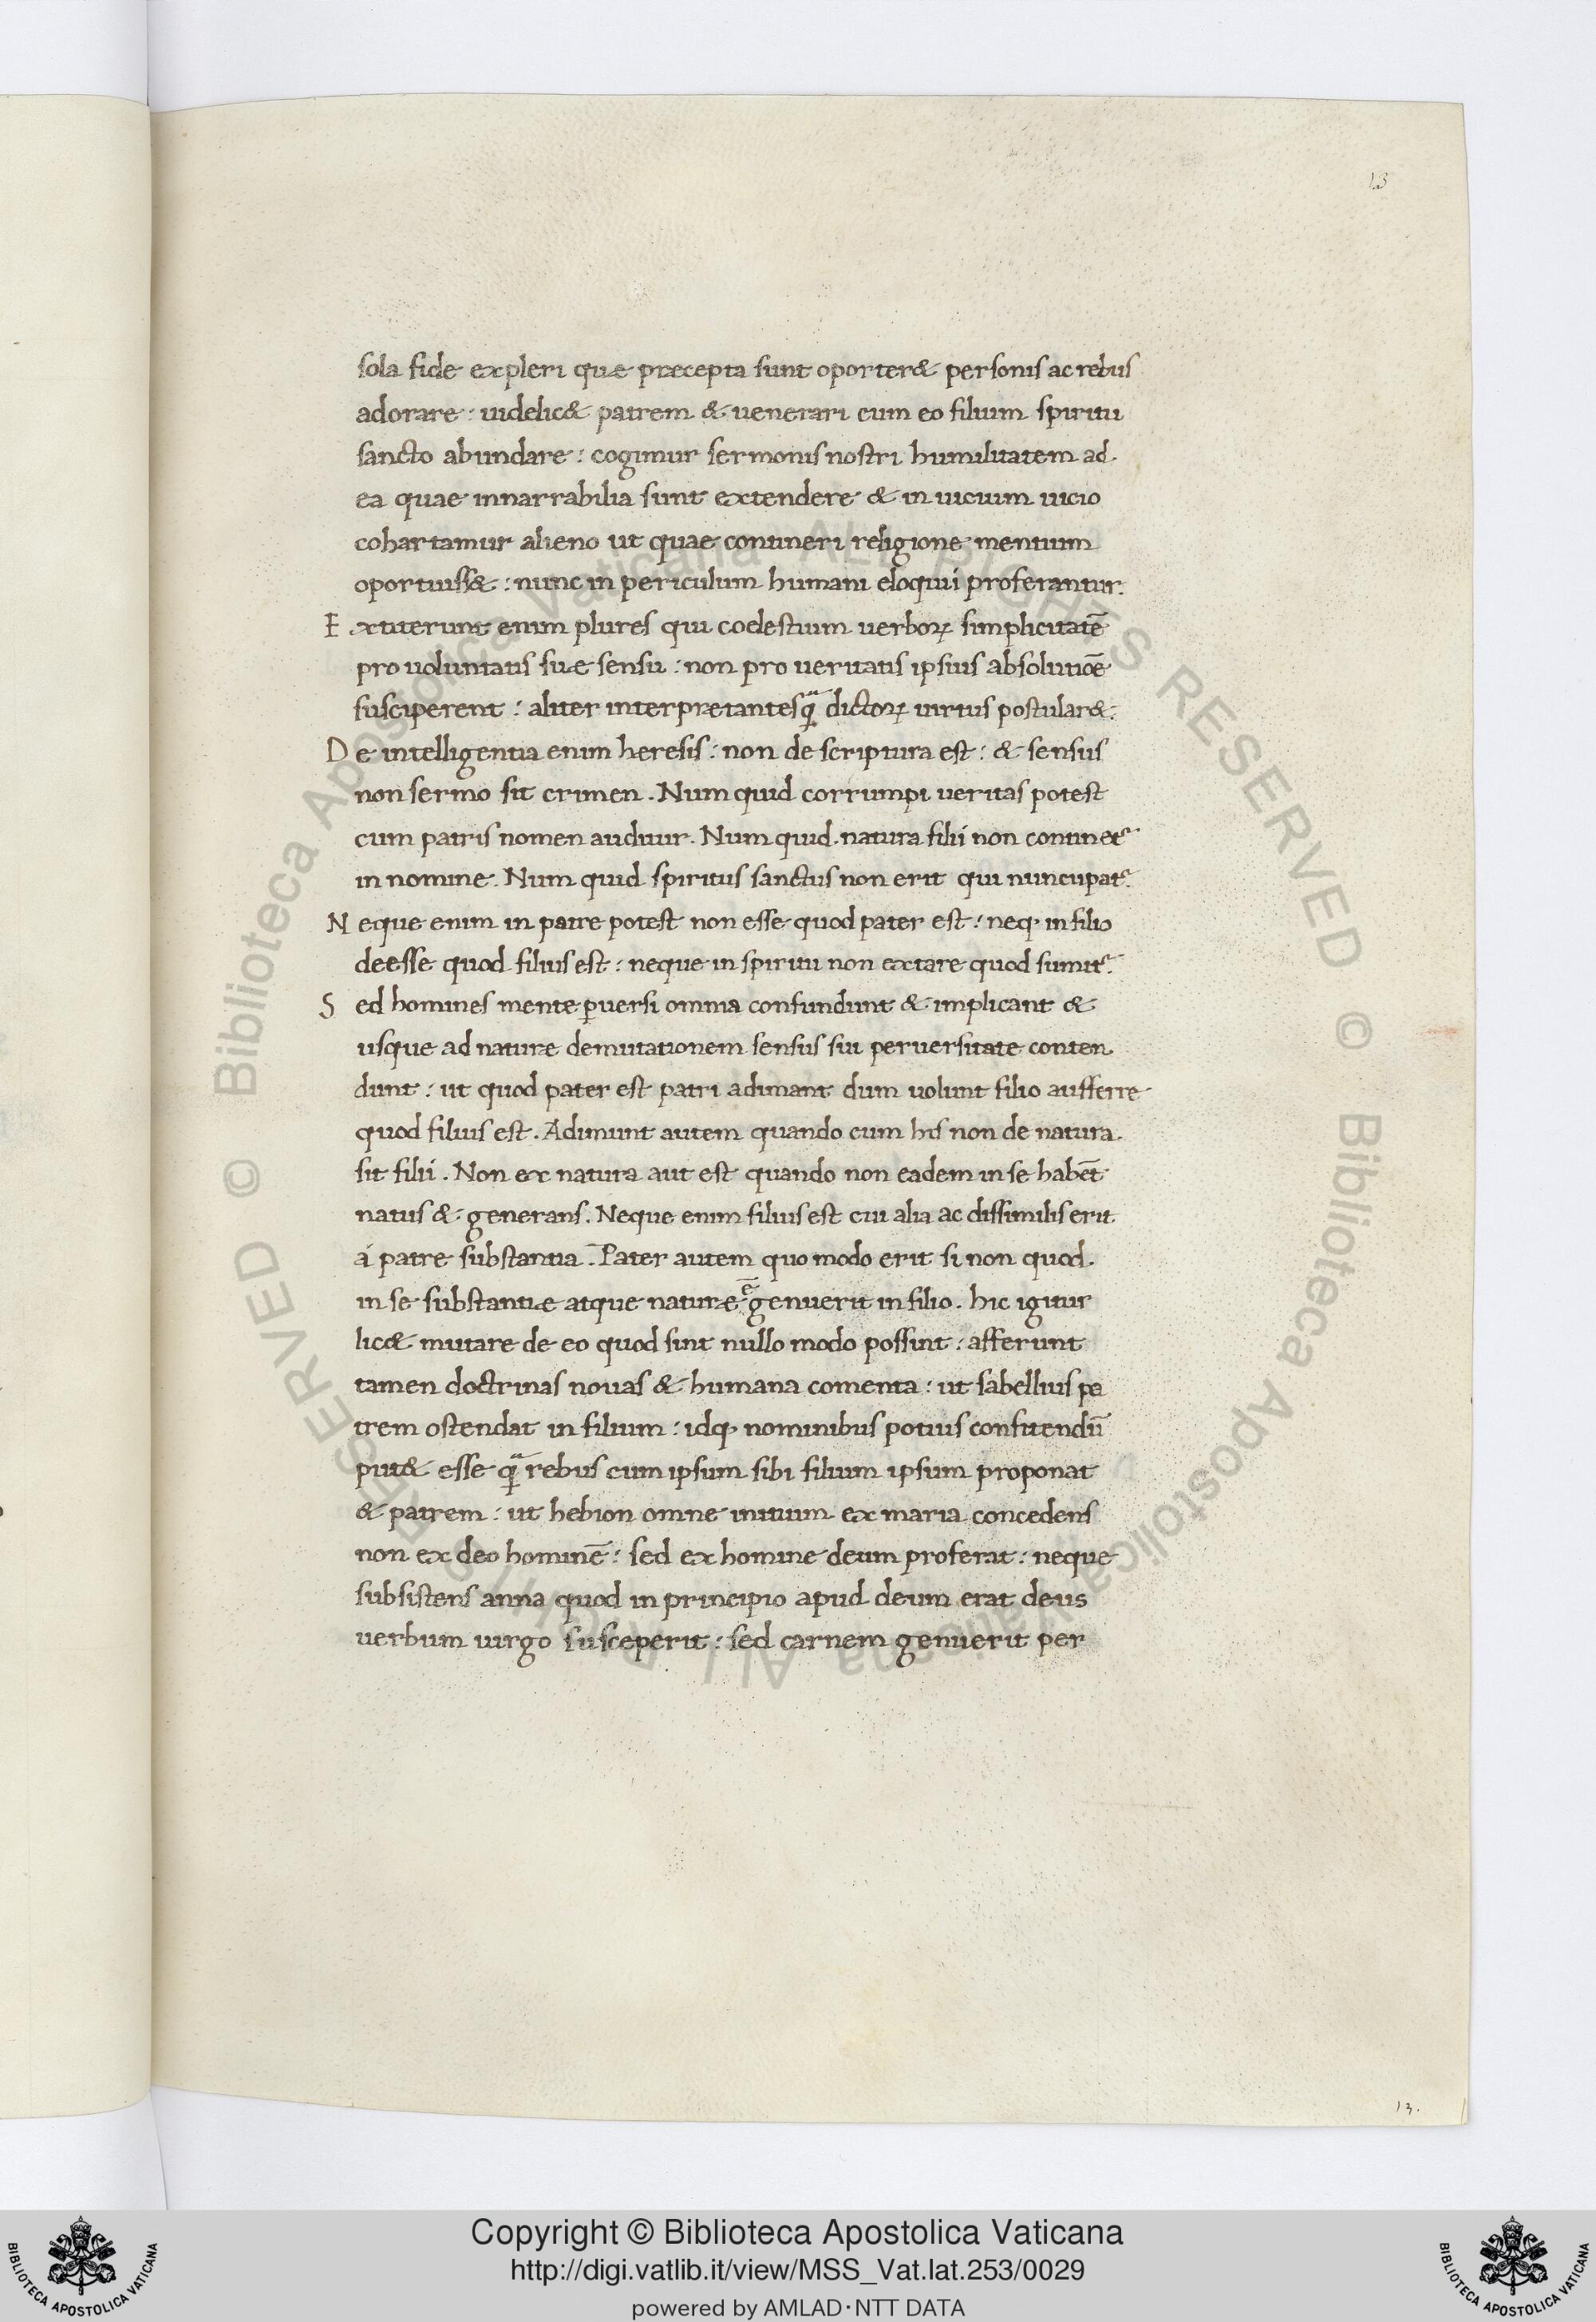 13
sola fide expleri quæ præcepta sunt oporter& personis ac rebus
adorare : uidelic& patrem & uenerari cum eo filium spiritu
sancto abundare : cogimur sermonis nostri humilitatem ad
ea quae innarrabilia sunt extendere & in uicium uicio
cohartamur alieno ut quae contineri religione mentium
oportuiss& : nunc in periculum humani eloquii proferantur.
Extiterunt enim plures qui coelestium uerboꝝ simplicitatē
pro uoluntatis suæ sensu : non pro ueritatis ipsius absolutiōe
susciperent : aliter interpretantes ꝗᷓ dictoꝝ uirtus postular& :
De intelligentia enim heresis : non de scriptura est : & sensus
non sermo fit crimen . Num quid corrumpi ueritas potest
cum patris nomen auditur . Num quid natura filii non continet᷑
in nomine . Num quid spiritus sanctus non erit qui nuncupat᷑.
Neque enim in patre potest non esse quod pater est : neqꝫ in filio
deesse quod filius est : neque in spiritu non extare quod sumit᷑.
Sed homines mente ꝑuersi omnia confundunt & implicant &
usque ad naturæ demutationem sensus sui peruersitate conten
dunt : ut quod pater est patri adimant dum uolunt filio aufferre
quod filius est . Adimunt autem quando cum his non de natura
sit filii . Non ex natura aut est quando non eadem in se habēt
natus & generans . Neque enim filius est cui alia ac dissimilis erit
á patre substantia . Pater autem quo modo erit si non quod
in se substantiæ atque naturæ ē genuerit in filio . hic igitur
lic& mutare de eo quod sint nullo modo possint : afferunt
tamen doctrinas nouas & humana comenta : ut sabellius pa
trem ostendat in filium : idqꝫ nominibus potius confitendū
put& esse ꝗᷓ rebus cum ipsum sibi filium ipsum proponat
& patrem : ut hebion omne initium ex maria concedens
non ex deo hominē : sed ex homine deum proferat : neque
subsistens anna quod in principio apud deum erat deus
uerbum uirgo susceperit : sed carnem genuerit per
13.
© Biblioteca Apostolica Vaticana ALL RIGHTS RESERVED © Biblioteca Apostolica Vaticana ALL RIGHTS RESERVED
Copyright © Biblioteca Apostolica Vaticana
http://digi.vatlib.it/view/MSS_Vat.lat.253/0029
powered by AMLAD·NTT DATA
BIBLIOTECA APOSTOLICA VATICANA
BIBLIOTECA APOSTOLICA VATICANA